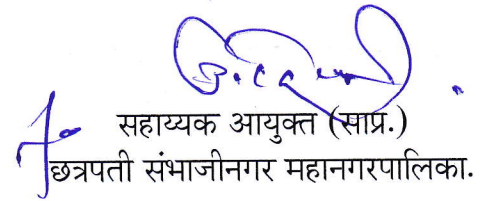 सहाय्यक आयुक्त (साप्र.)
छत्रपती संभाजीनगर महानगरपालिका.